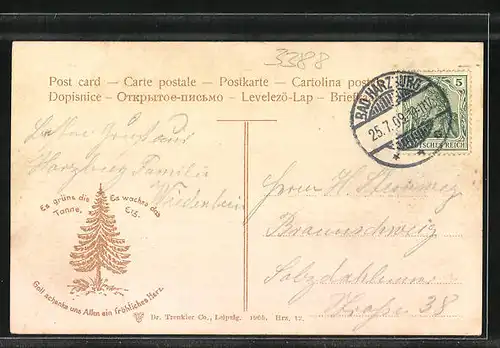 3388
Post card – Carte postale – Postkarte – Cartolina post
Dopisnice – Открытое-письмо – Levelező-Lap – Brief
BAD HARZBURG
25.7.09
5
DEUTSCHES REICH
Harzburg Familie
Es grüne die Tanne,
Es wachse das Erz.
Gott schenke uns Allen ein fröhliches Herz.
Herrn H.
Braunschweig
Salzdahlumer
Straße 38
Dr. Trenkler Co., Leipzig. 1905. Hrz. 12.